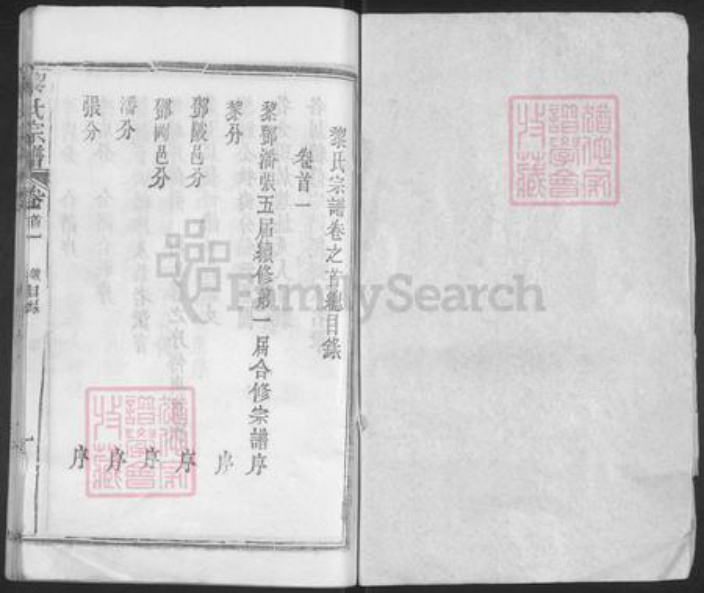 黎氏宗譜卷之首總目錄
卷首一
黎鄧潘張五届續修第一届合修宗譜序
黎分 序
鄧嚴邑分 序
鄧岡邑分 序
潘分 序
張分 序
黎氏宗譜
卷首一
總目錄
一
FamilySearch
譜學會
收藏
譜學會
收藏